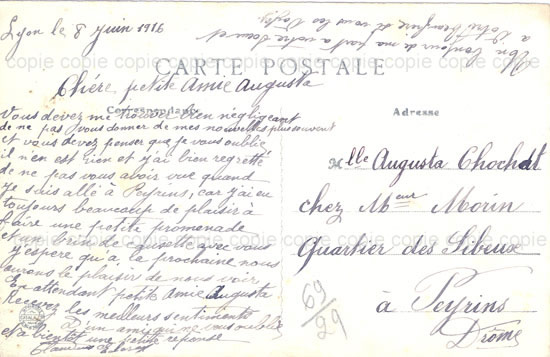 Lyon le 8 juin 1916
CARTE POSTALE
Chère petite Amie Augusta
Correspondance
Adresse
Vous devez me trouver bien négligeant
de ne pas vous donner de mes nouvelles plus souvent
et vous devez penser que je vous oublie
il n'en est rien et j'ai bien regretté
de ne pas vous avoir vue quand
je suis allé à Peyrins, car j'ai eu
toujours beaucoup de plaisir à
faire une petite promenade
et un brin de causette avec vous
j'espère qu'à la prochaine nous
aurons le plaisir de nous voir
En attendant petite Amie Augusta
Recevez les meilleurs sentiments
D'un ami qui ne vous oublie
et à bientôt une petite réponse
Mlle Augusta Chochat
chez Meur Morin
Quartier des Sibeux
à Peyrins
Drôme
69/29
copie copie copie copie copie copie copie